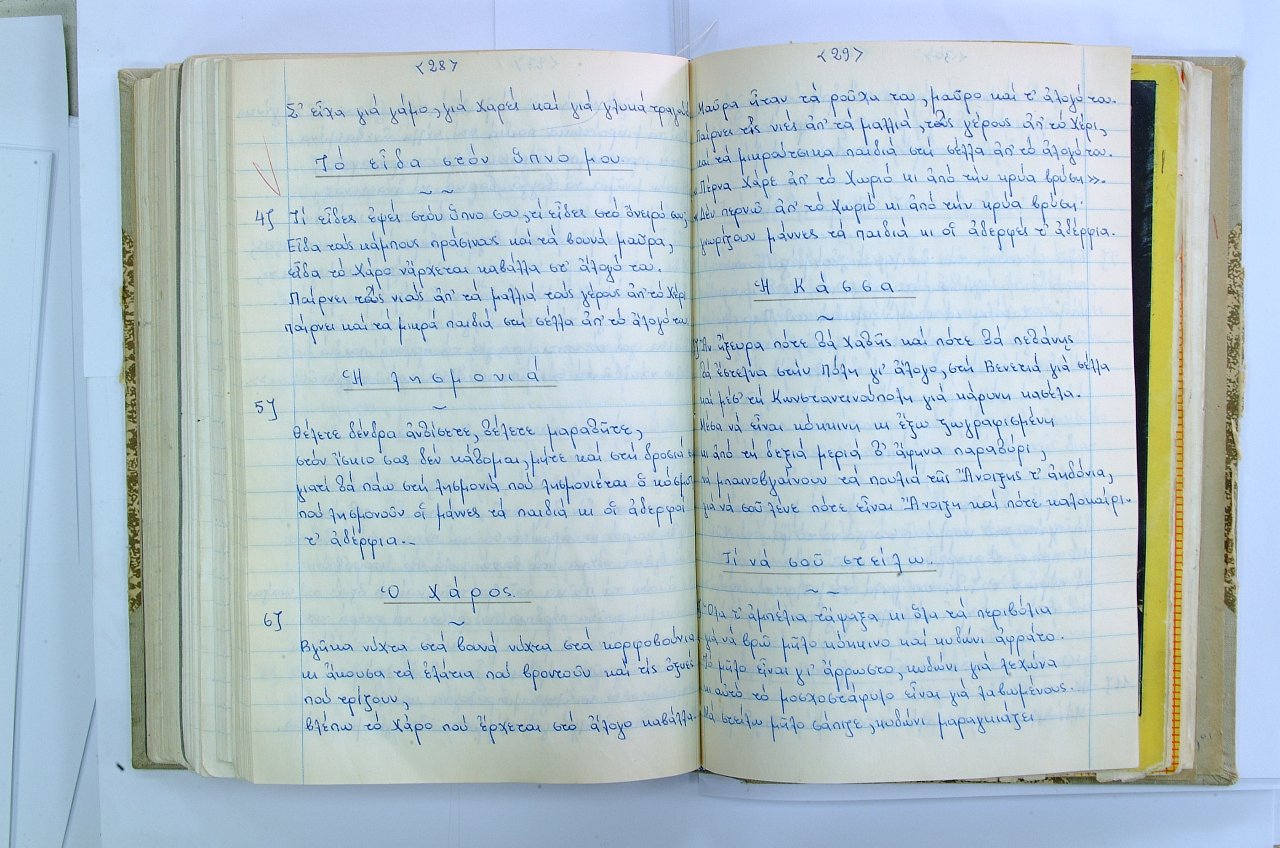 <28>
Σ' εἶχα γιά γάμο, γιά χαρές καί γιά γλυκά τραγού
Τό εἶδα στόν ὕπνο μου.
4] Τί εἶδες ἐψές στόν ὕπνο σου, τί εἶδες στό ὄνειρό σου,
Εἶδα τούς κάμπους πράσινους καί τά βουνά μαῦρα,
εἶδα τό Χάρο νἄρχεται καβάλλα στ' ἄλογό του.
Παίρνει τούς νιούς ἀπ' τά μαλλιά τούς γέρους ἀπ' τό χέρι
παίρνει καί τά μικρά παιδιά στή σέλλα ἀπ' τό ἄλογό του
Ἡ λησμονιά
5]
Θέλετε δένδρα ἀνθίσετε, θέλετε μαραθῆτε,
στόν ἴσκιο σας δέν κάθομαι, μήτε καί στή δροσιά
γιατί θά πάω στή λησμονιά πού λησμονιέται ὁ κόσμο
πού λησμονοῦν οἱ μάννες τά παιδιά κι οἱ ἀδερφοί
τ' ἀδέρφια..
Ὁ Χάρος.
6]
Βγῆκα νύχτα στά βουνά νύχτα στά κορφοβούνια
κι ἄκουσα τά ἐλάτια πού βροντοῦν καί τίς ὀξυές
πού τρίζουν,
βλέπω τό Χάρο πού ἔρχεται στό ἄλογο καβάλλα.
<29>
Μαῦρα ἦταν τά ροῦχα του, μαῦρο καί τ' ἄλογό του.
Παίρνει τίς νιές ἀπ' τά μαλλιά, τούς γέρους ἀπ' τό χέρι,
καί τά μικρούτσικα παιδιά στή σέλλα ἀπ' τό ἄλογό του.
«Πέρνα Χάρε ἀπ' τό χωριό κι ἀπό τήν κρύα βρύση».
«Δέν περνῶ ἀπ' τό χωριό κι ἀπό τήν κρύα βρύση.
γνωρίζουν μάννες τά παιδιά κι οἱ ἀδερφές τ' ἀδέρφια.
Ἡ Κάσσα.
Ἄν ἤξευρα πότε θά χαθῆς καί πότε θά πεθάνης
θά ἔστελνα στήν Πόλη γι' ἄλογο, στή Βενετιά γιά σέλλα
καί μέσ' τή Κωνσταντινούπολη γιά κάρυνη κασέλα.
Μέσα νά εἶναι κόκκινη κι ἔξω ζωγραφισμένη
κι ἀπό τή δεξιά μεριά θ' ἄφηνα παραθύρι,
νά μπαινοβγαίνουν τά πουλιά τῆς Ἄνοιξης τ' ἀηδόνια,
γιά νά σοῦ λένε πότε εἶναι Ἄνοιξη καί πότε καλοκαίρι.
Τί νά σοῦ στείλω.
Ὅλα τ' ἀμπέλια τἄψαξα κι ὅλα τά περιβόλια
γιά νά βρῶ μῆλο κόκκινο καί κυδώνι ἀφράτο.
Τό μῆλο εἶναι γι' ἄρρωστο, κυδώνι γιά λεχώνα
κι αὐτό τό μοσχοστάφυλο εἶναι γιά λαβωμένους.
Νά στείλω μῆλο σάπιζε, κυδώνι μαραγκιάζει